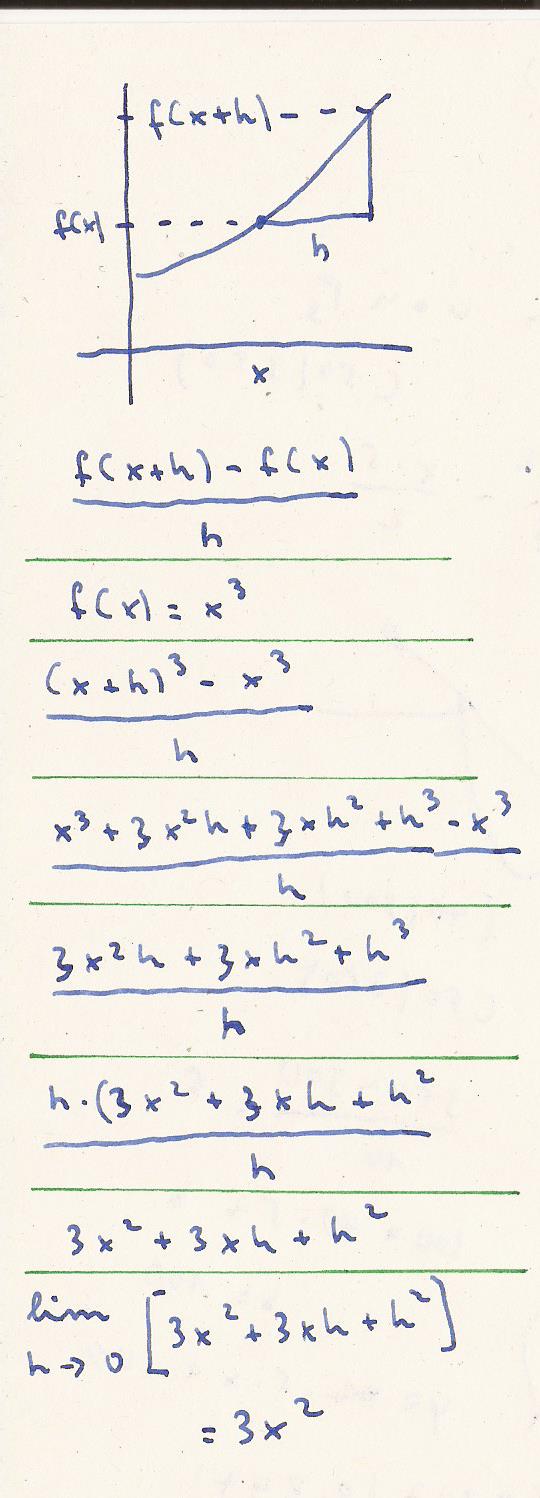 f(x+h)
f(x)
h
x
f(x+h) - f(x)
h
f(x) = x³
(x+h)³ - x³
h
x³ + 3x²h + 3xh² + h³ - x³
h
3x²h + 3xh² + h³
h
h·(3x² + 3xh + h²
h
3x² + 3xh + h²
lim [3x² + 3xh + h²]
h→0
= 3x²